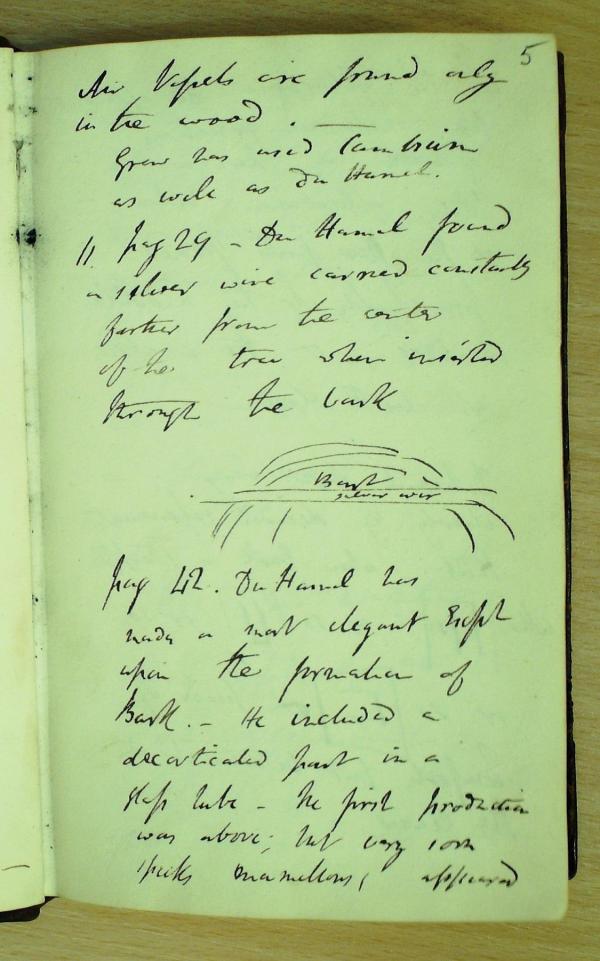 5
Air Vessels are found only
in the wood. —
Grew has used Cambium
as well as Du Hamel.
11. pag 29 — Du Hamel found
a silver wire carried constantly
farther from the center
of the tree when inserted
through the bark
Bark
silver wire
pag 42. Du Hamel has
made a most elegant Expt
upon the formation of
Bark. — He included a
decorticated part in a
glass tube — the first production
was above; but very soon
specks mamellons, appeared